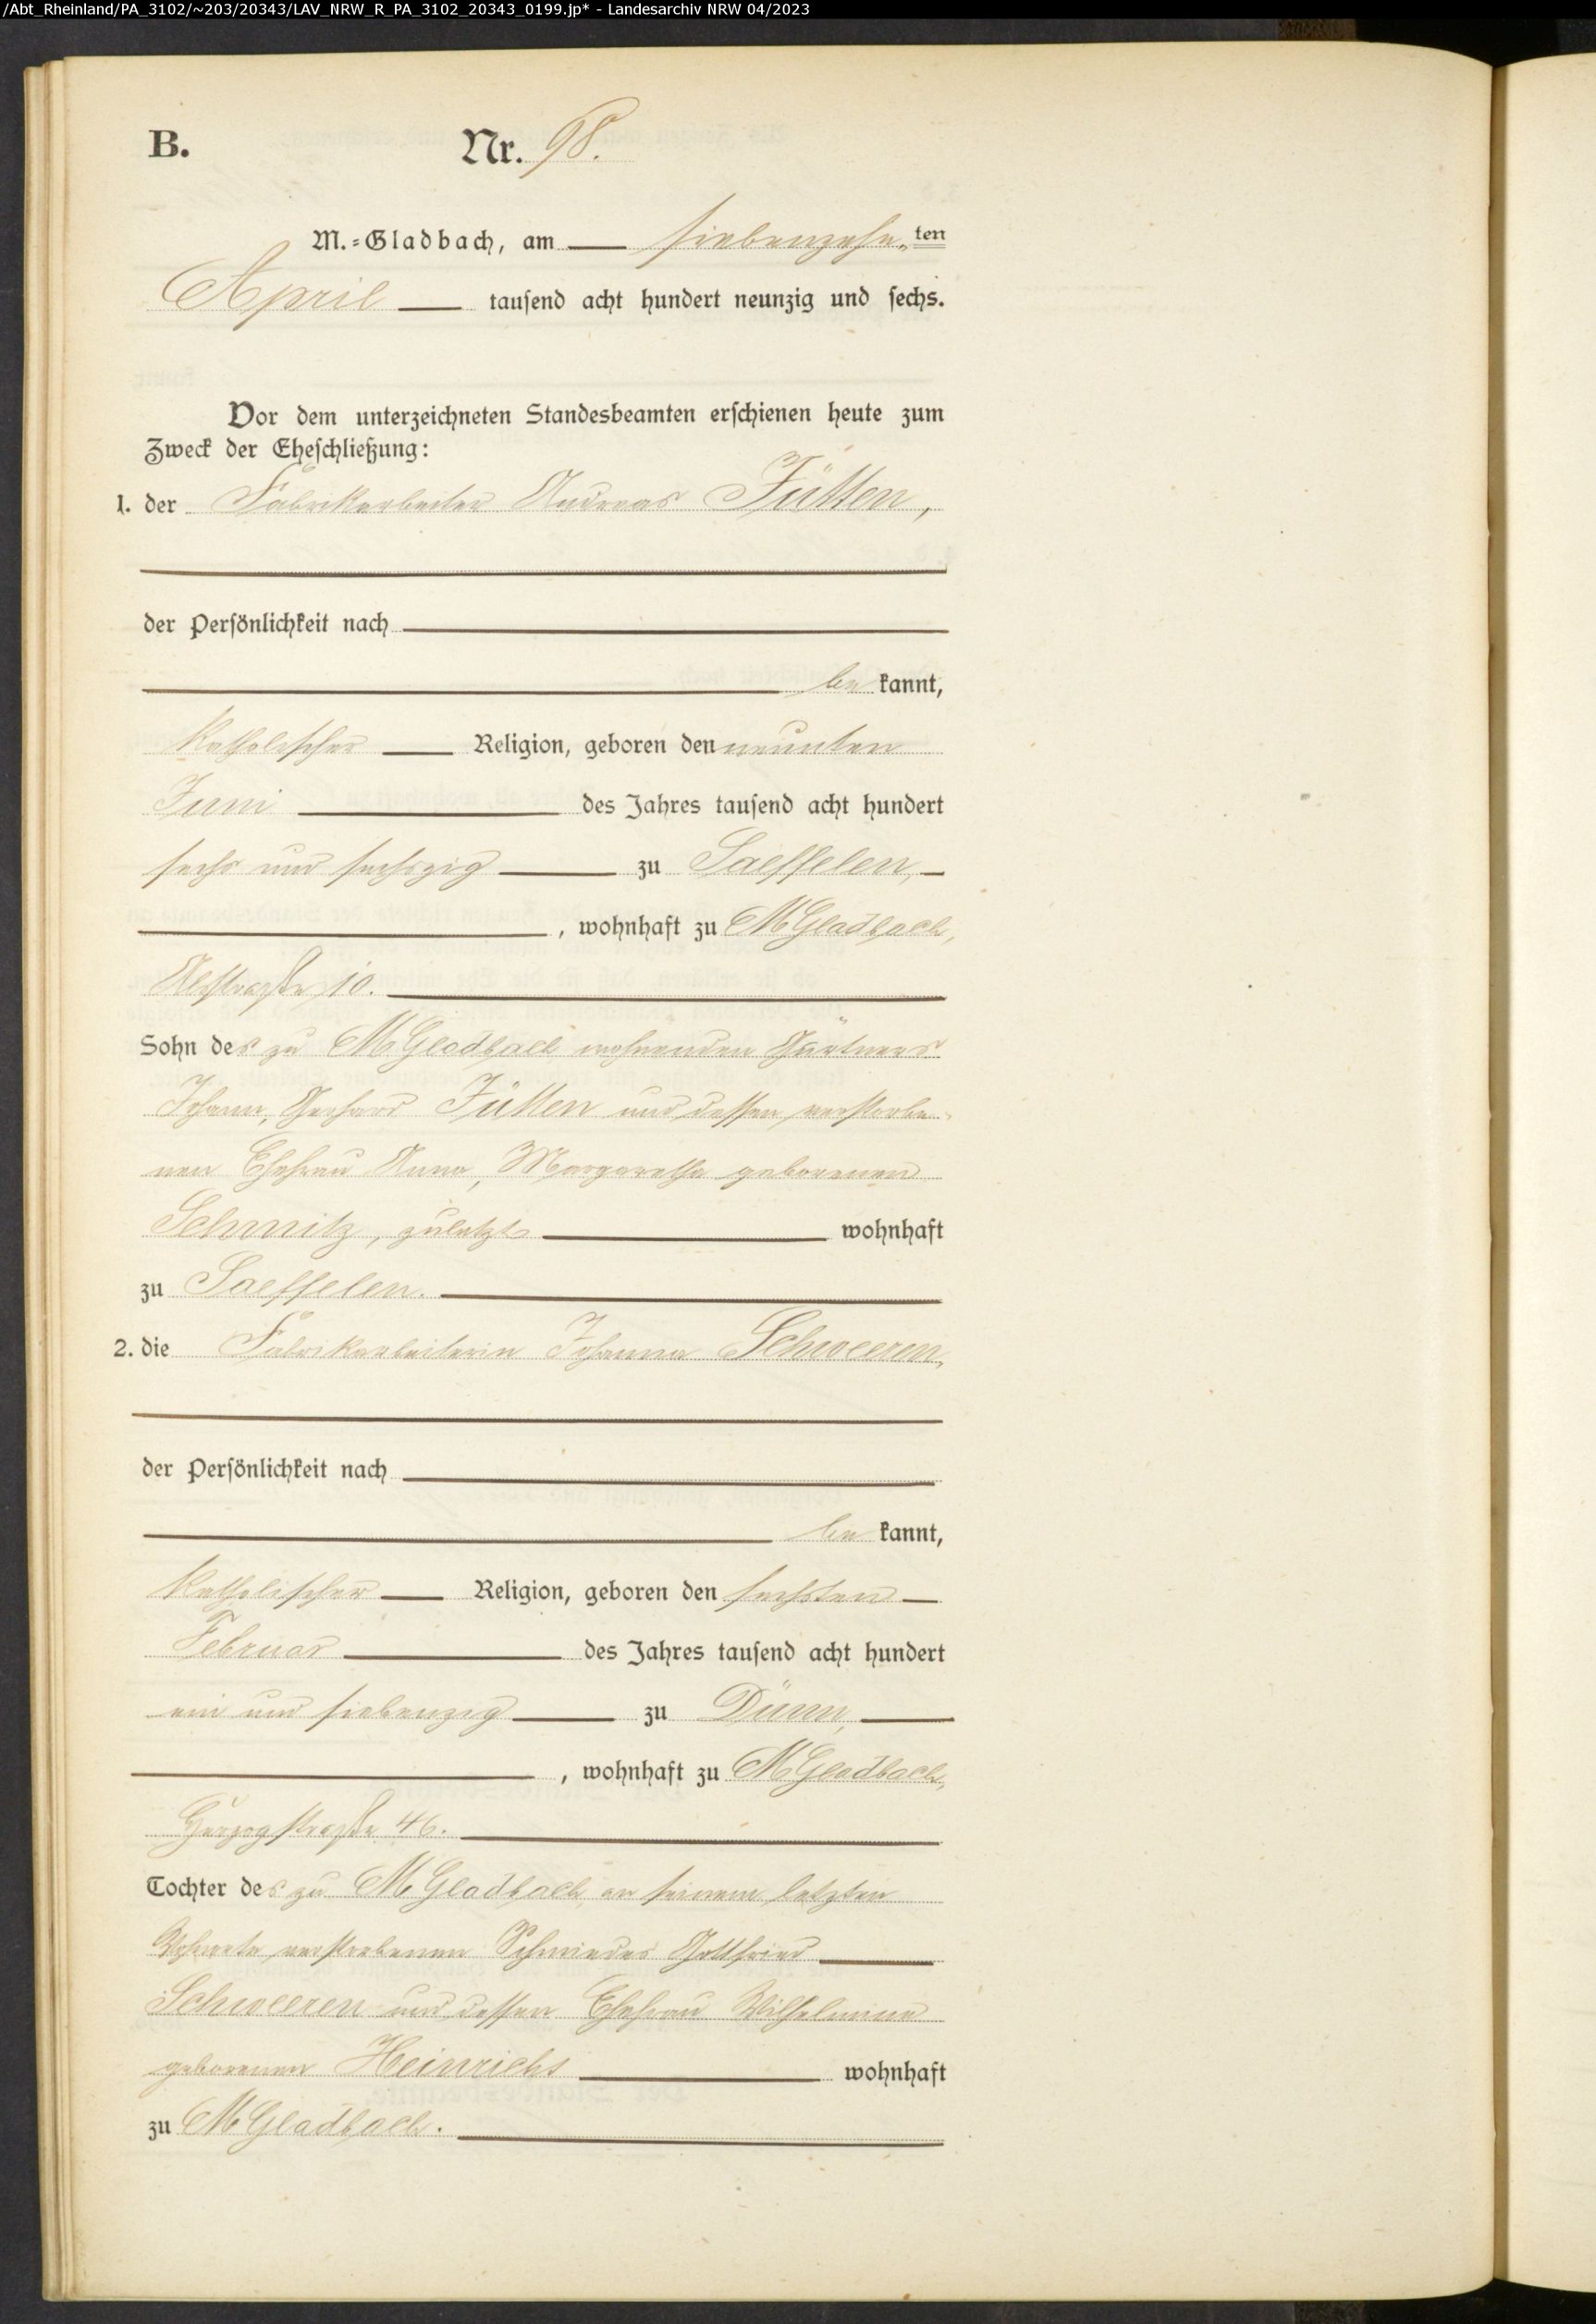 /Abt_Rheinland/PA_3102/~203/20343/LAV_NRW_R_PA_3102_20343_0199.jp* - Landesarchiv NRW 04/2023
B. Nr. 98.
M.=Gladbach, am siebenzehn ten
April tausend acht hundert neunzig und sechs.
Vor dem unterzeichneten Standesbeamten erschienen heute zum
Zweck der Eheschließung:
1. der Fabrikarbeiter Andreas Jütten,
der Persönlichkeit nach
be kannt,
katholischer Religion, geboren den neunten
Juni des Jahres tausend acht hundert
sechs und sechszig zu Saeffelen,
, wohnhaft zu MGladbach,
10.
Sohn des zu MGladbach wohnenden Gärtners
Johann, Gerhard Jütten und dessen verstorbe-
nen Ehefrau Anna, Margaretha geborenen
Schmitz, zuletzt wohnhaft
zu Saeffelen.
2. die Fabrikarbeiterin Johanna Schweeren,
der Persönlichkeit nach
be kannt,
katholischer Religion, geboren den sechsten
Februar des Jahres tausend acht hundert
ein und siebenzig zu Dünn,
, wohnhaft zu MGladbach,
Herzogstraße 46.
Tochter des zu MGladbach, an seinem letzten
Wohnorte verstorbenen Schmiedes Gottfried
Schweeren und dessen Ehefrau Wilhelmine
geborenen Heinrichs wohnhaft
zu MGladbach.